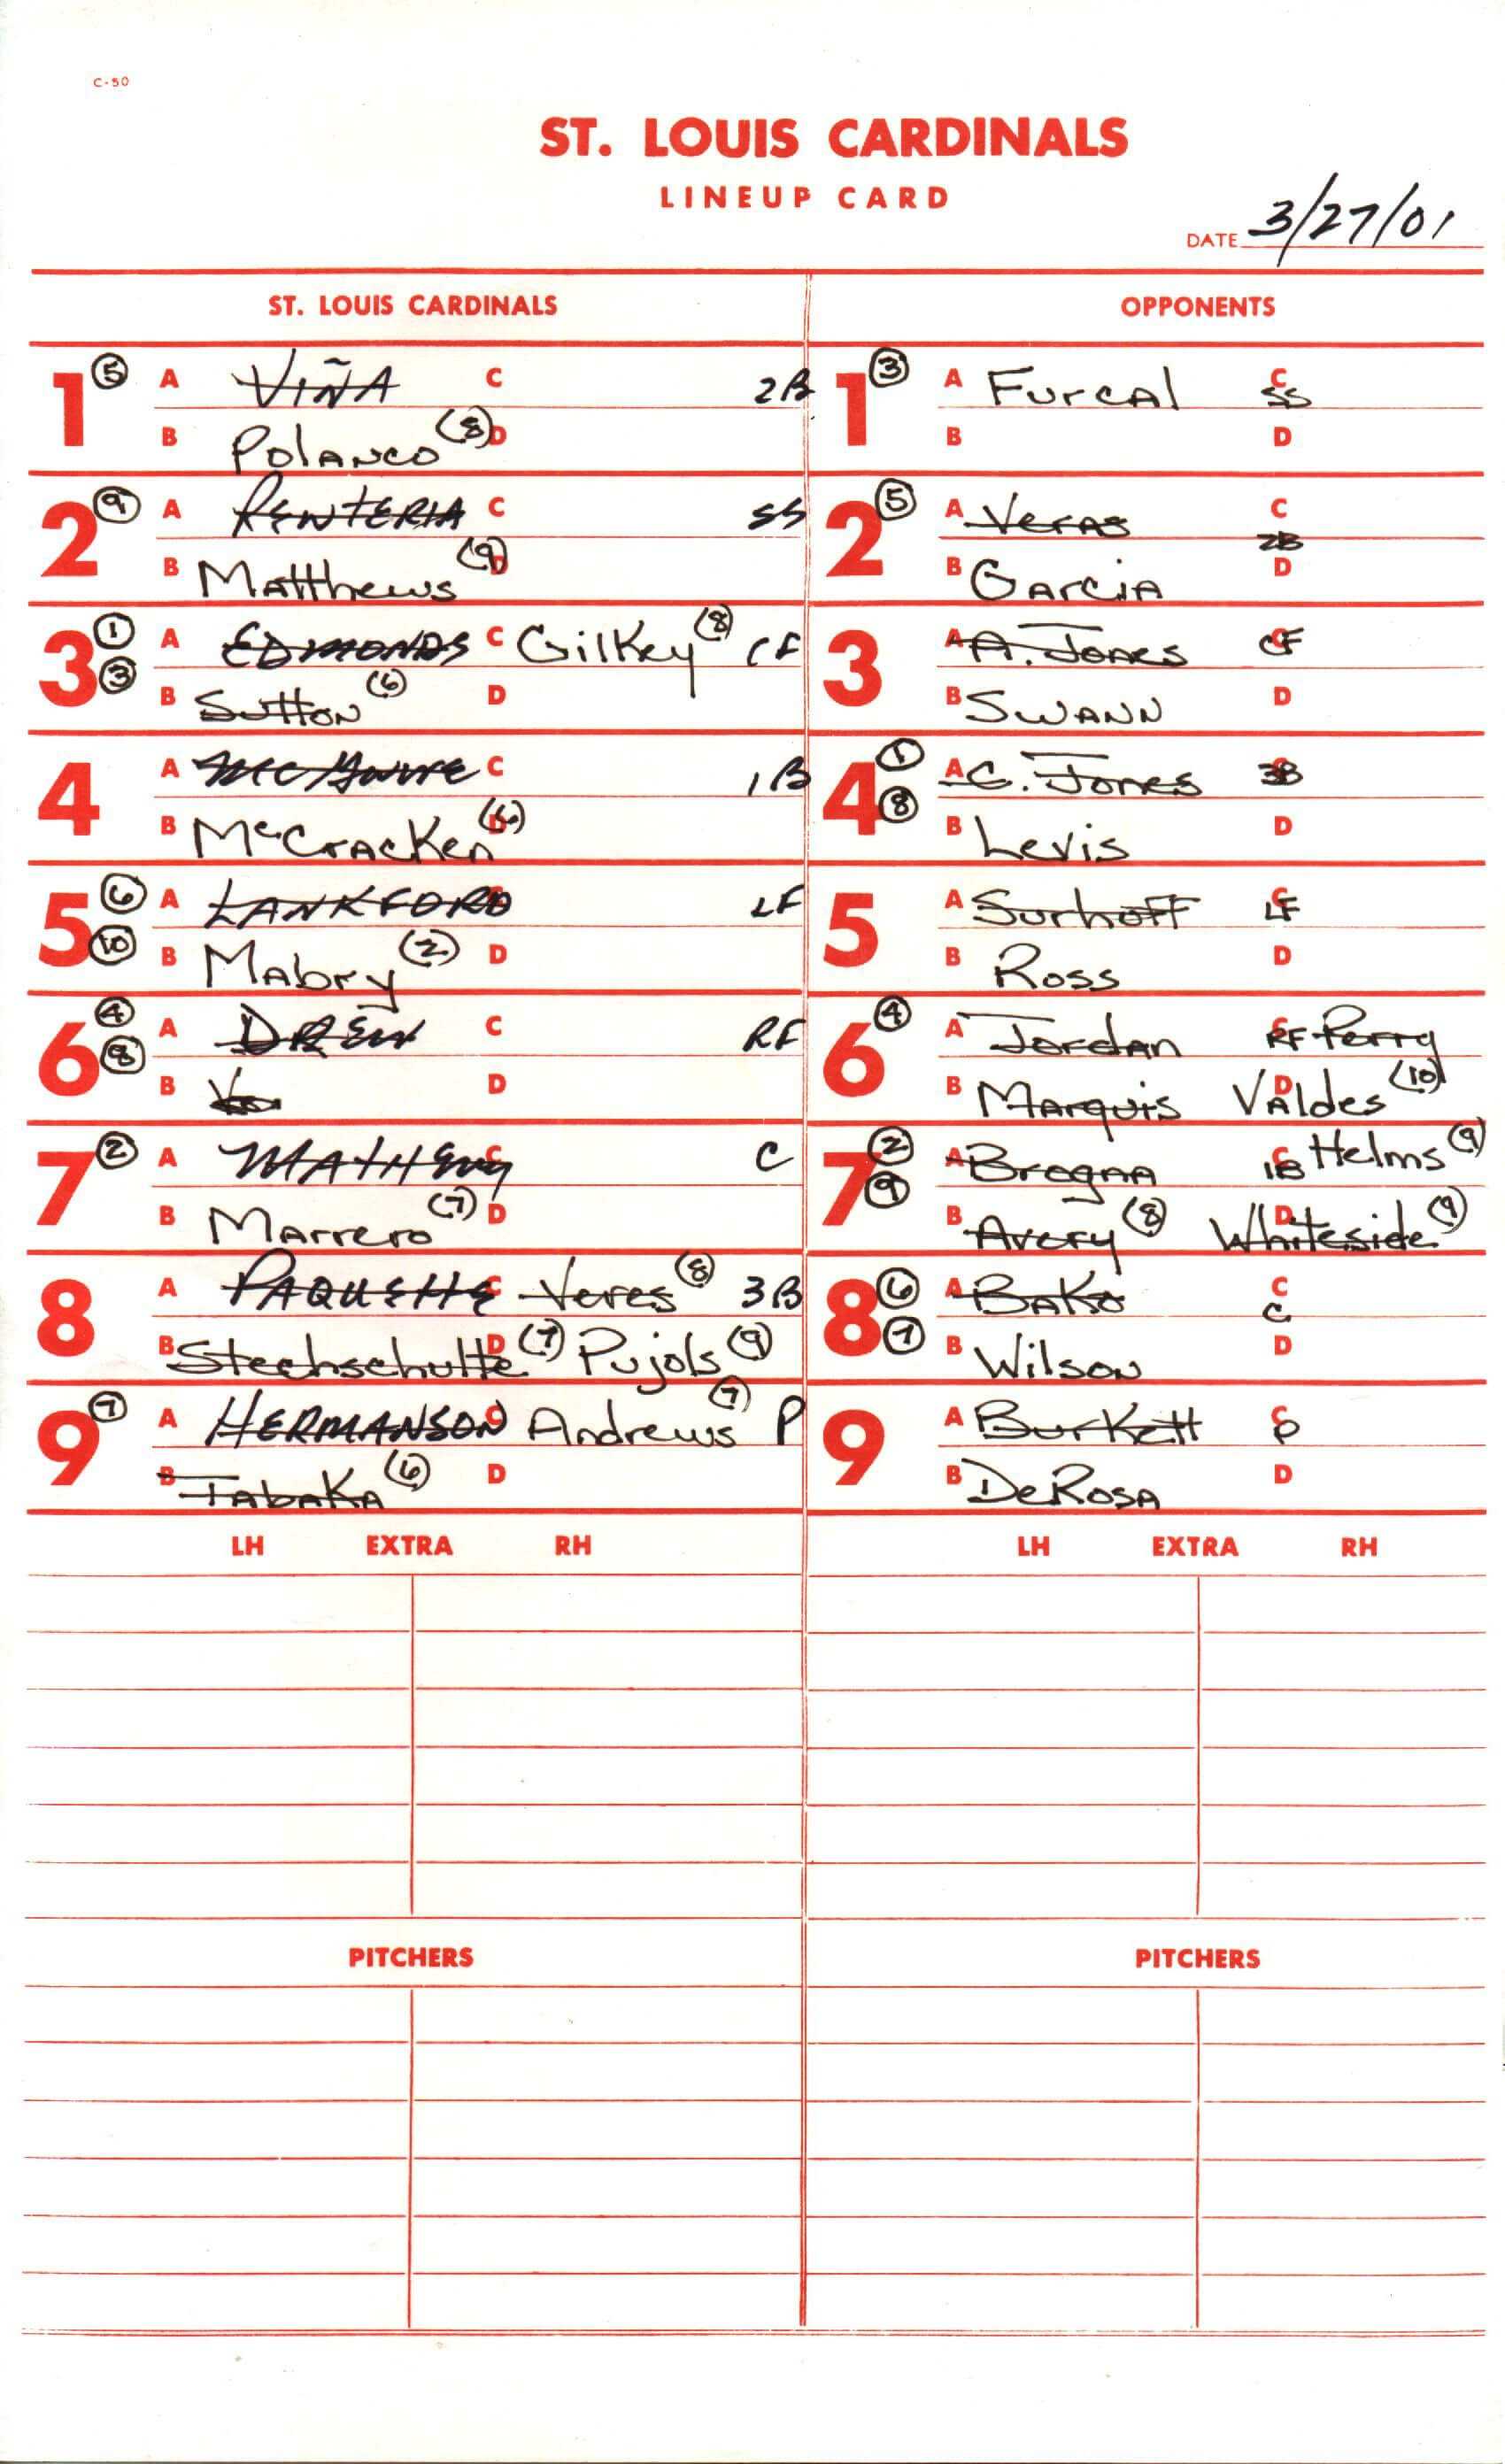 C-50
ST. LOUIS CARDINALS
LINEUP CARD
DATE 3/27/01
ST. LOUIS CARDINALS
1 (5) A VIÑA C 2B
B Polanco (8) D
2 (9) A RENTERIA C SS
B Matthews (9) D
3 (1) A EDMONDS C Gilkey (8) CF
(3) B Sutton (6) D
4 A McGwire C 1B
B McCracken (6) D
5 (6) A LANKFORD C LF
(10) B Mabry (2) D
6 (4) A DREW C RF
(8) B D
7 (2) A MATHENY C C
B Marrero (7) D
8 A PAQUETTE C Veres (8) 3B
B Stechschulte D (7) Pujols (9)
9 (7) A HERMANSON C Andrews (7) P
B Tabaka (6) D
LH EXTRA RH
PITCHERS
OPPONENTS
1 (3) A Furcal C SS
B D
2 (5) A Veras C 2B
B Garcia D
3 A A. Jones C CF
B Swann D
4 (1) A C. Jones C 3B
(8) B Levis D
5 A Surhoff C LF
B Ross D
6 (4) A Jordan C RF Perry
B Marquis D Valdes (10)
7 (2) A Brogna C 1B Helms (9)
(9) B Avery (8) D Whiteside (9)
8 (6) A Bako C C
(7) B Wilson D
9 A Burkett C P
B DeRosa D
LH EXTRA RH
PITCHERS